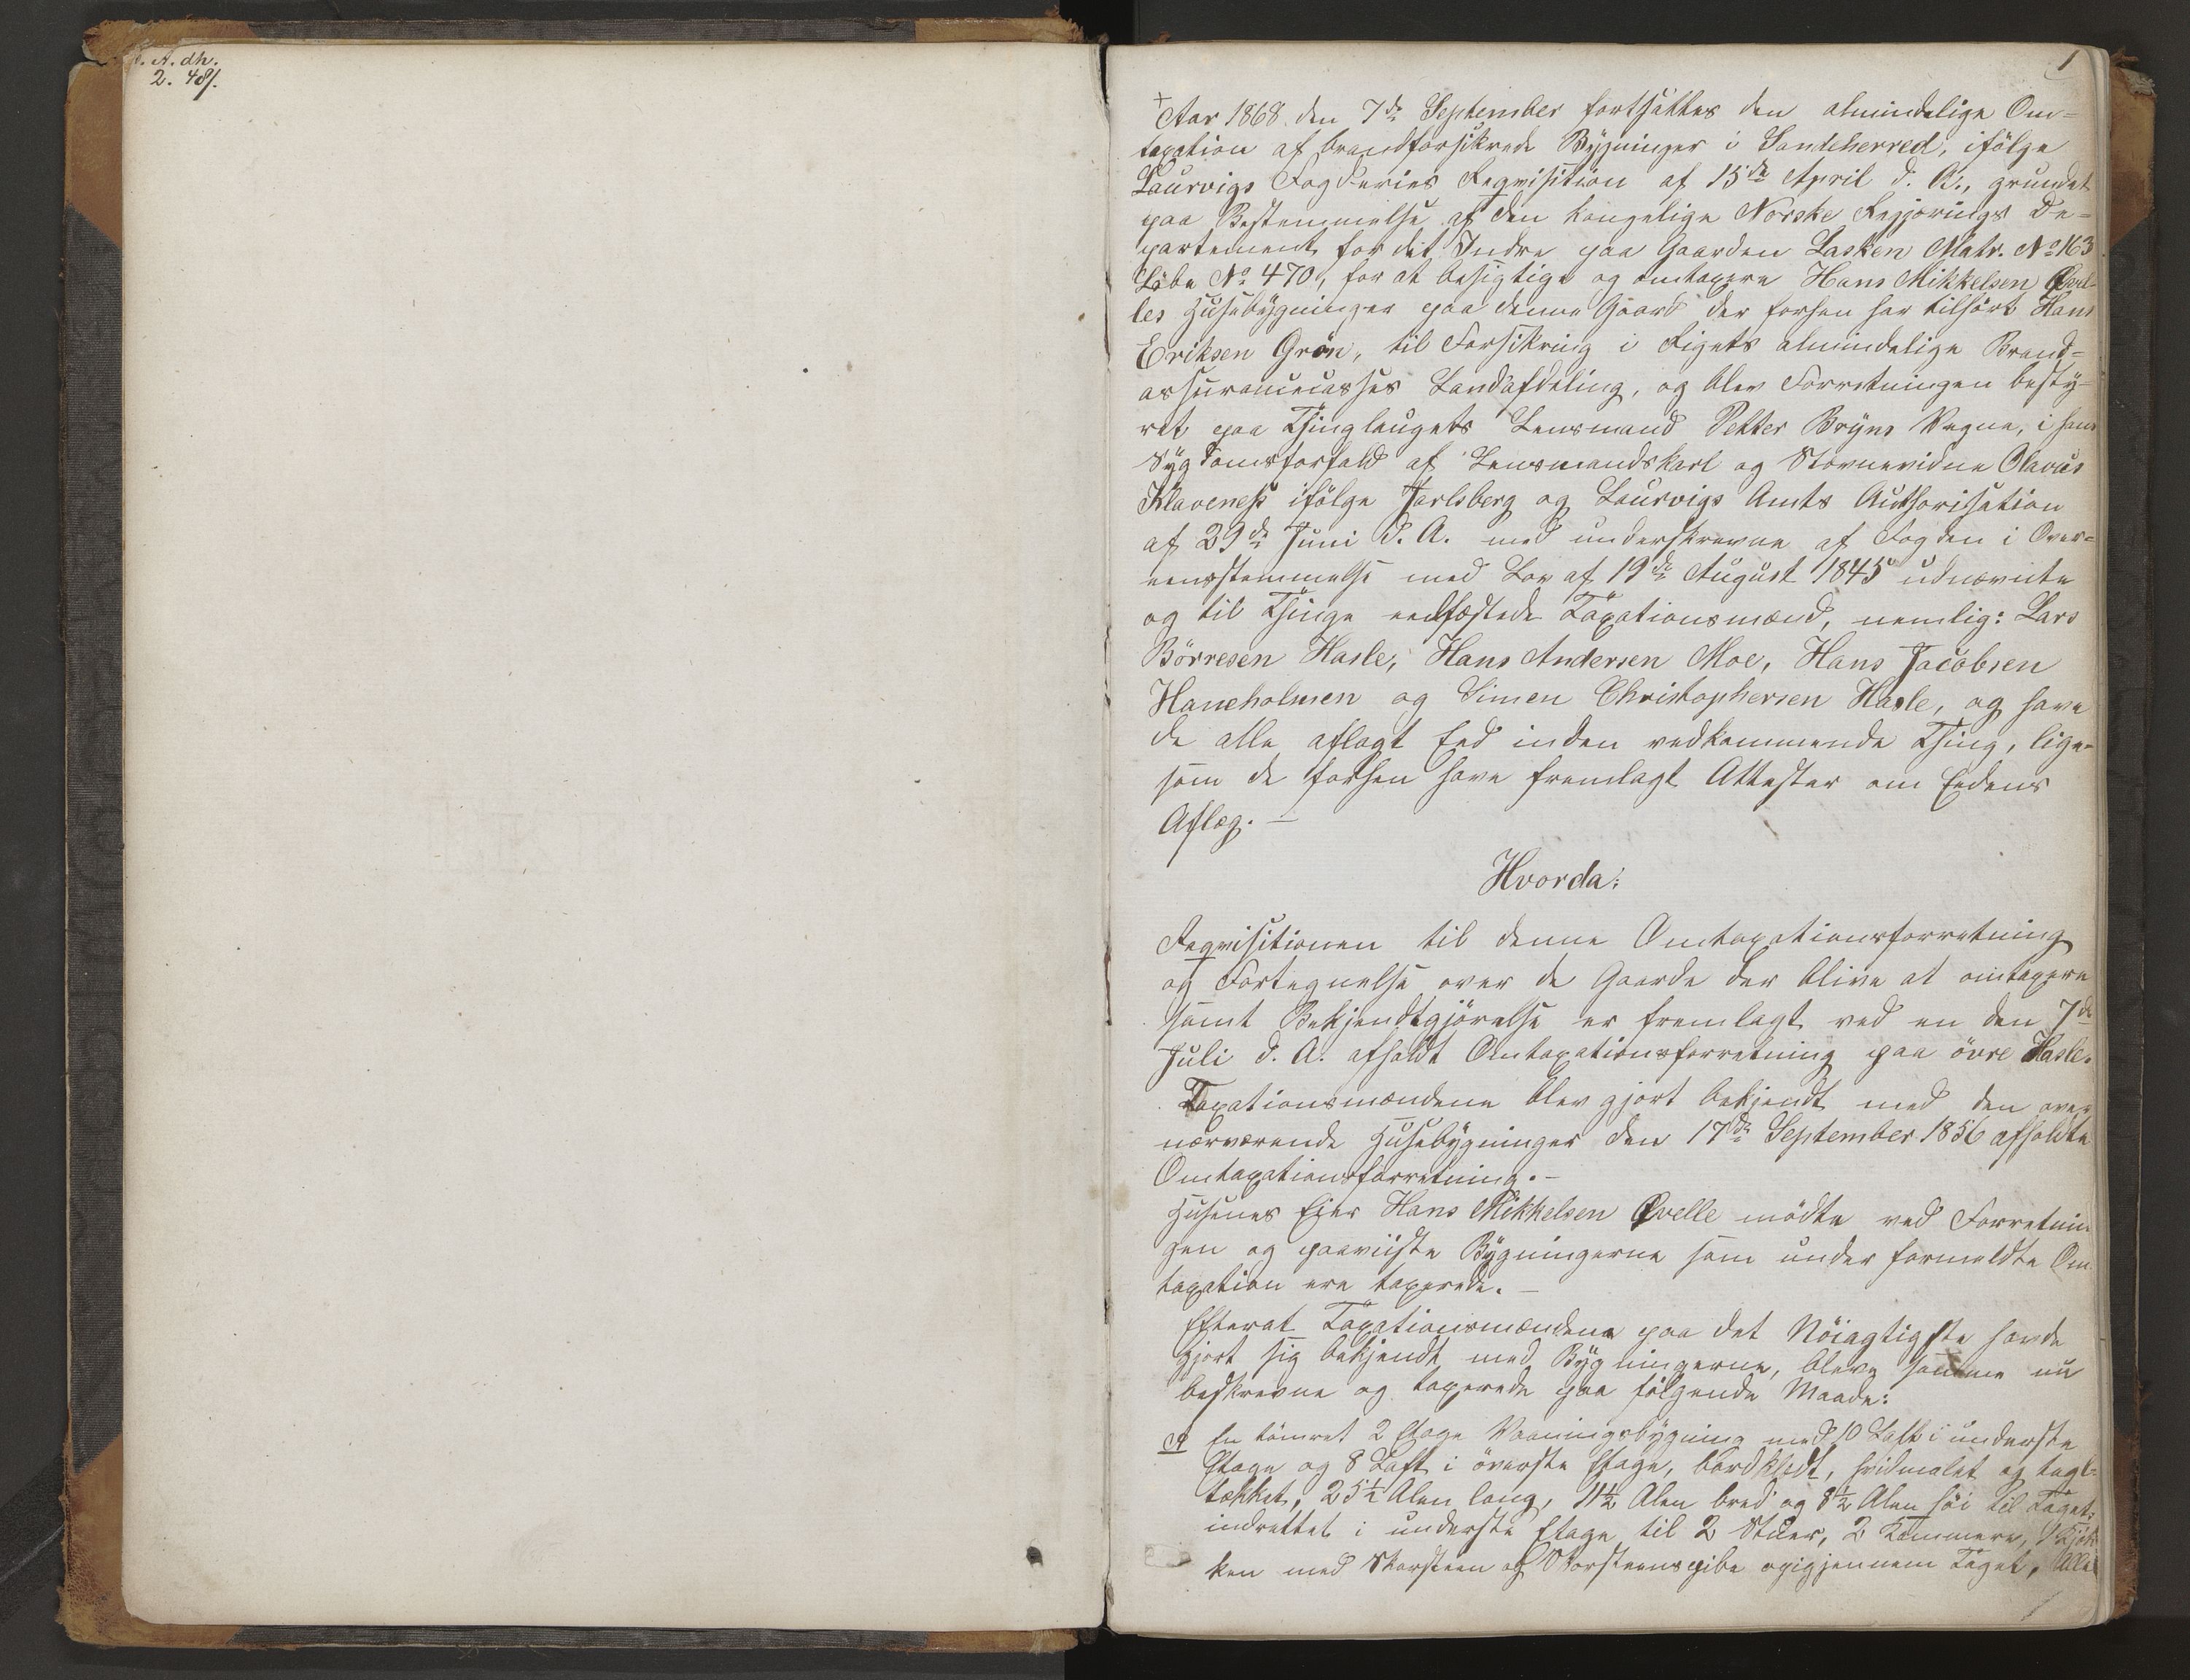 A. dh.
2. 48f.
1
+
Aar 1868 den 7de September fortsattes den almindelige Om=
taxation af brandforsikrede Bygninger i Sandeherred, ifölge
Laurvigs Fogderies Reqvisition af 15de April d. A., grundet
paa Bestemmelse af den kongelige Norske Regjerings De=
partement for det Indre paa Gaarden Lasken Matr. No 163
Löbe No 470, for at besigtige og omtaxere Hans Mikkelsen Qvel=
les Husebygninger paa denne Gaard der forhen har tilhört Hans
Eriksen Grön, til Forsikring i Rigets almindelige Brand=
assurancecasses Landafdeling, og blev Forretningen besty=
ret paa Thinglaugets Lensmand Petter Bryns Vegne, i hans
Sygdomsforfald af Lensmandskarl og Stævnevidne Olavus
Klaveness ifölge Jarlsberg og Laurvigs Amts Authorisation
af 29de Juni d. A. med underskrevne af Fogden i Over=
eensstemmelse med Lov af 19de August 1845 udnævnte
og til Thinge eedfæstede Taxationsmænd, nemlig: Lars
Börresen Hasle, Hans Andersen Moe, Hans Jacobsen
Haneholmen og Simen Christophersen Hasle, og have
de alle aflagt Eed inden vedkommende Thing, lige=
som de forhen have fremlagt Attester om Eedens
Aflæg. —
Hvorda:
Reqvisitionen til denne Omtaxationsforretning
og Fortegnelse over de Gaarde der blive at omtaxere
samt Bekjendtgjörelse er fremlagt ved en den 7de
Juli d. A. afholdt Omtaxationsforretning paa övre Hasle.
Taxationsmændene blev gjort bekjendt med den over
nærværende Husebygninger den 17de September 1856 afholdte
Omtaxationsforretning. —
Husenes Eier Hans Mikkelsen Qvelle mödte ved Forretnin
gen og paaviiste Bygningerne som under formeldte Om
taxation ere taxerede. —
Efterat Taxationsmændene paa det Nöiagtigste havde
gjort sig bekjendt med Bygningerne, bleve samme nu
beskrevne og taxerede paa fölgende Maade:
A En tömret 2 Etage Vaaningsbygning med 10 Laft i underste
Etage og 8 Laft i överste Etage, bordklædt, hvidmalet og tagl=
tækket, 25½ Alen lang, 11½ Alen bred og 8½ Alen höi til Taget,
indrettet i underste Etage til 2 Stuer, 2 Kammere, 1 Kjök
ken med Skorsteen og Skorsteenspibe opigjennem Taget,